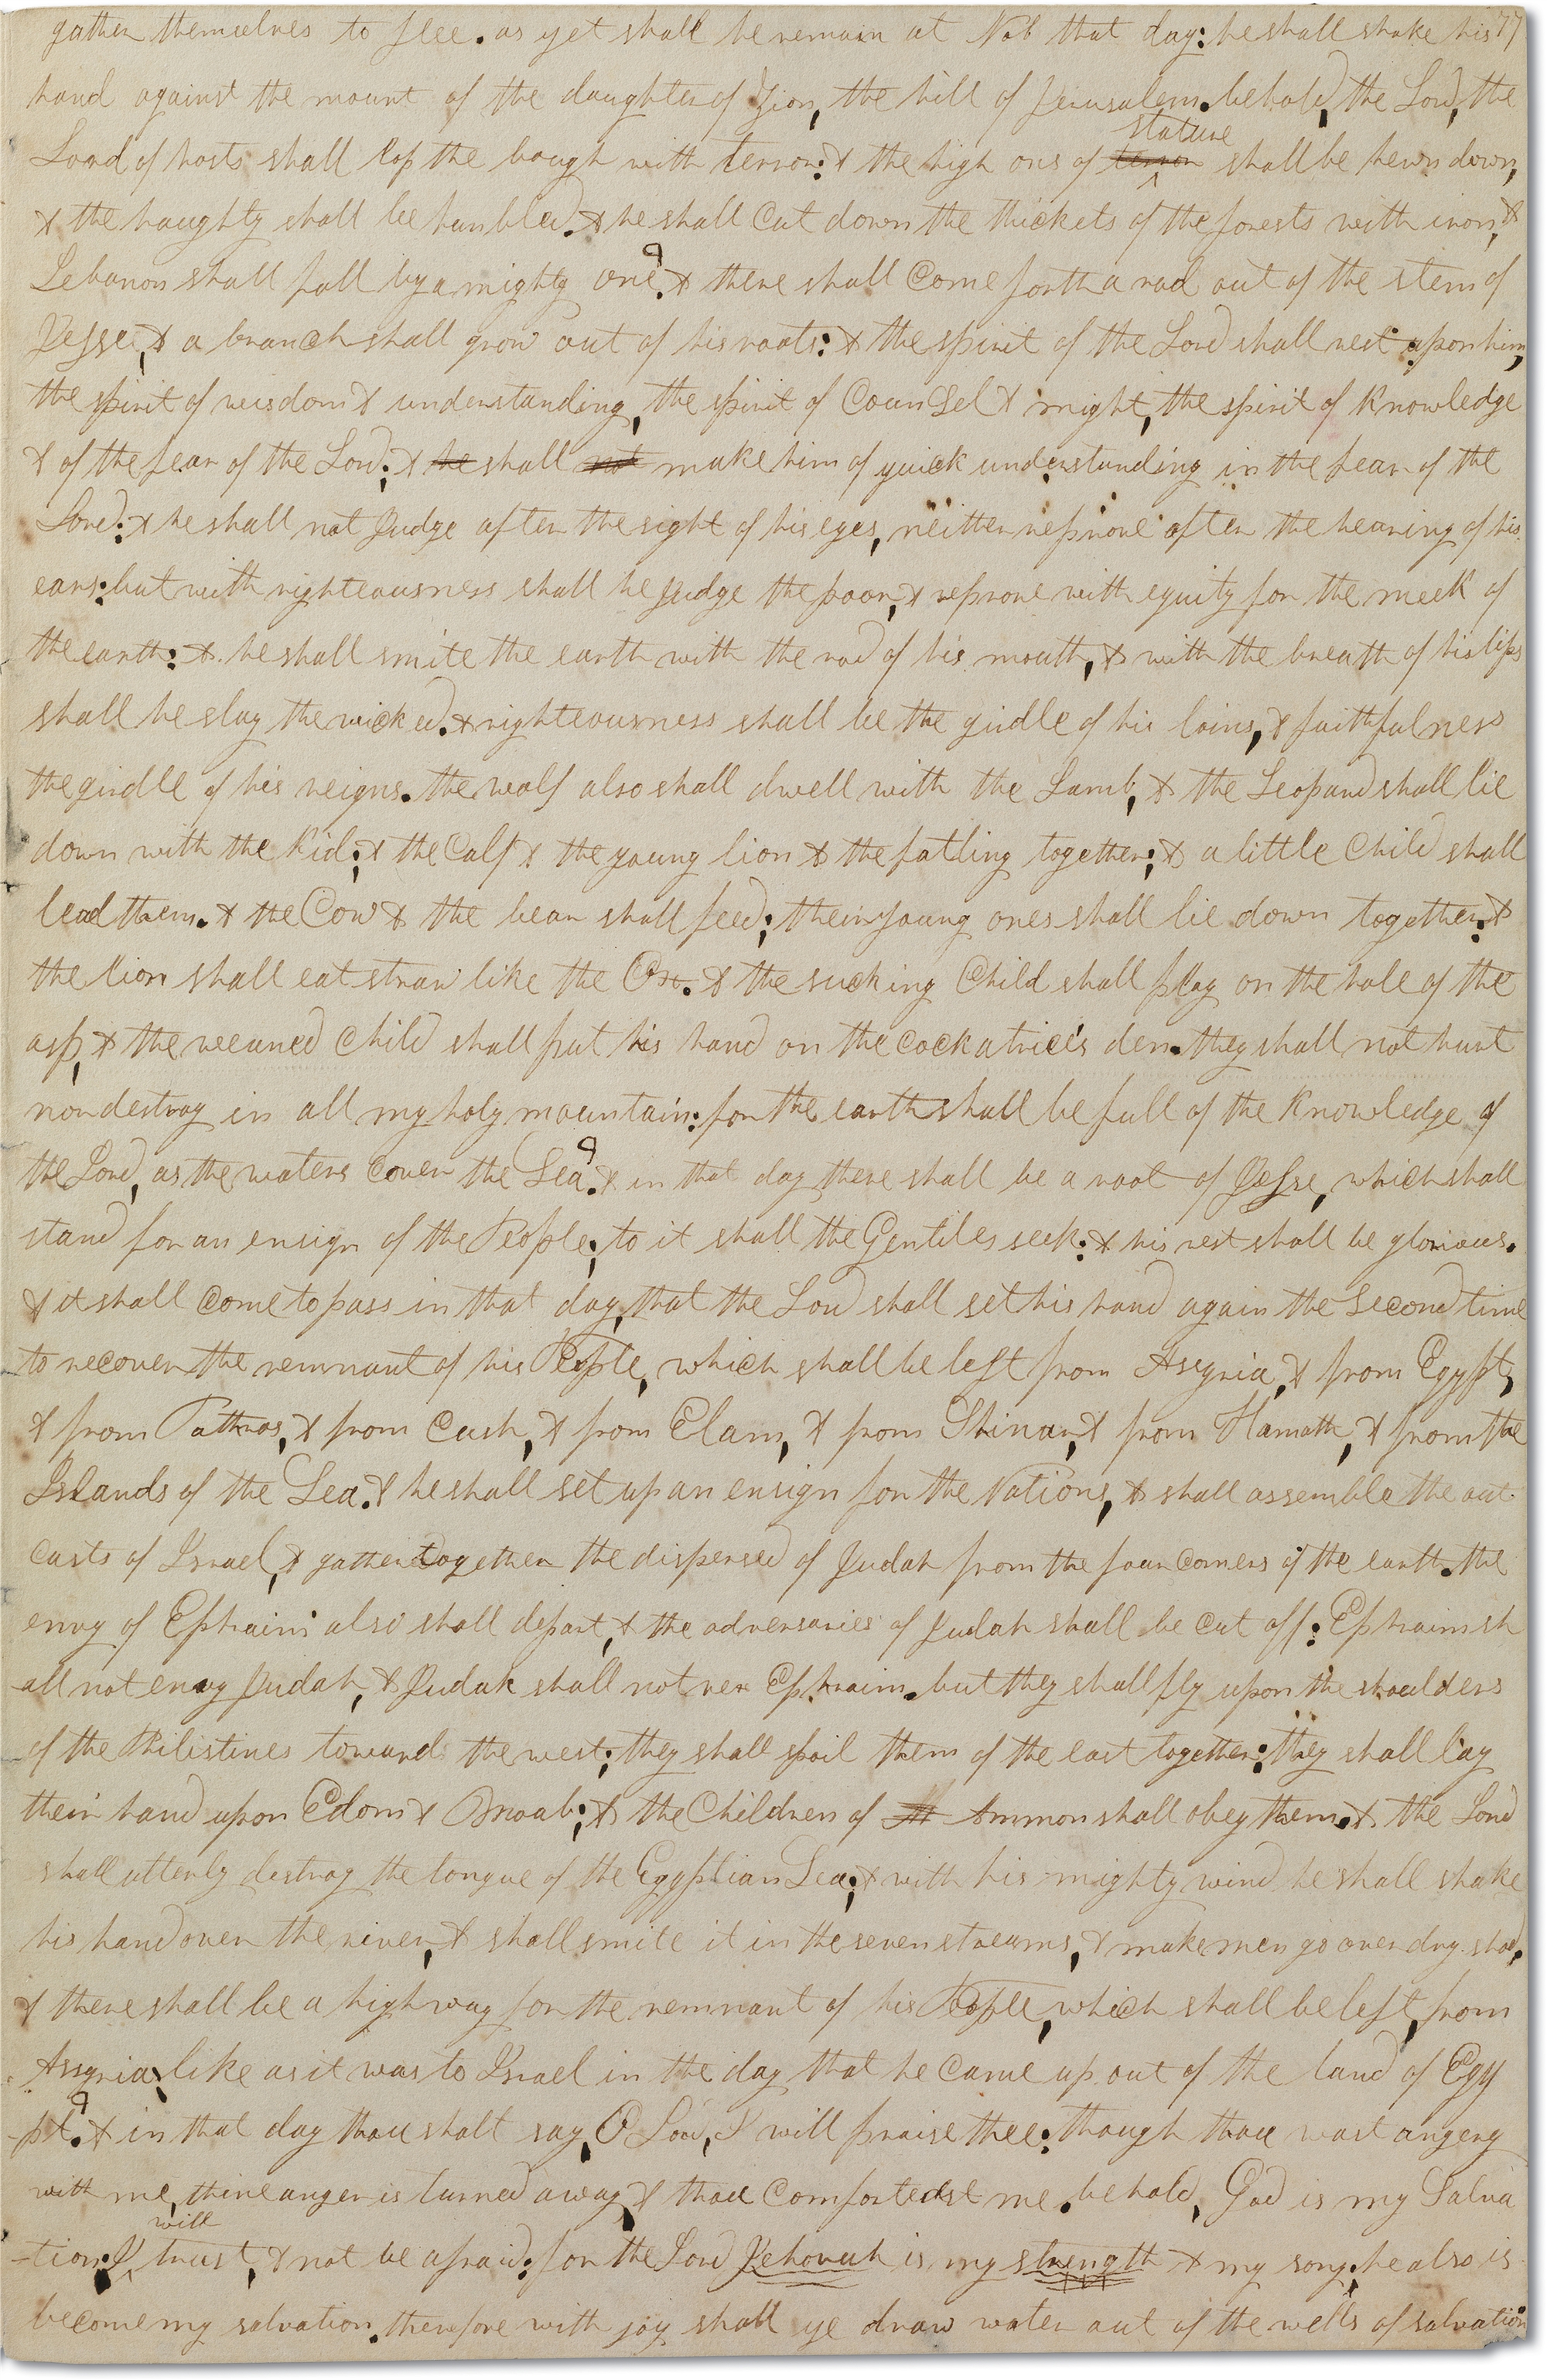 gather themselves to flee. as yet shall he remain at Nob that day: he shall shake his 77
hand against the mount of the daughter of Zion, the hill of Jerusalem. behold, the Lord, the
Lord of hosts shall lop the bough with terror: & the high ons of terror stature shall be hewn down,
& the haughty shall be humbled. & he shall cut down the thickets of the forests with iron, &
Lebanon shall fall by a mighty one. & there shall Come forth a rod out of the stem of
Jesse, & a branch shall grow out of his roots: & the spirit of the Lord shall rest upon him,
the spirit of wisdom & understanding, the spirit of Counsel & might, the spirit of Knowledge
& of the fear of the Lord; & he shall not make him of quick understanding in the fear of the
Lord: & he shall not Judge after the sight of his eyes, neither reprove after the hearing of his
ears: but with righteousness shall he Judge the poor, & reprove with equity for the meek of
the earth: & he shall smite the earth with the rod of his mouth, & with the breath of his lips
shall he slay the wicked. & righteousness shall be the girdle of his loins, & faithfulness
the girdle of his reigns. the wolf also shall dwell with the Lamb, & the Leopard shall lie
down with the Kid; & the Calf & the young lion & the fatling together; & a little Child shall
lead them. & the Cow & the bear shall feed; their young ones shall lie down together: &
the lion shall eat straw like the Ox. & the sucking Child shall play on the hole of the
asp, & the weaned Child shall put his hand on the cockatrice's den. they shall not hurt
nor destroy in all my holy mountain: for the earth shall be full of the Knowledge of
the Lord, as the waters Cover the Sea. & in that day there shall be a root of Jesse, which shall
stand for an ensign of the People; to it shall the Gentiles seek: & his rest shall be glorious.
& it shall Come to pass in that day, that the Lord shall set his hand again the Second time
to recover the remnant of his People, which shall be left from Assyria, & from Egypt,
& from Pathros, & from Cush, & from Elam, & from Shinar, & from Hamath, & from the
Islands of the Sea. & he shall set up an ensign for the Nations, & shall assemble the out
casts of Israel, & gather together the dispersed of Judah from the four Corners of the earth. the
envy of Ephraim also shall depart, & the adversaries of Judah shall be Cut off: Ephraim sh
all not envy Judah, & Judah shall not vex Ephraim. but they shall fly upon the shoulders
of the Philistines towards the west; they shall spoil them of the east together: they shall lay
their hand upon Edom & Moab; & the Children of Ammon shall obey them. & the Lord
shall utterly destroy the tongue of the Egyptian Sea; & with his mighty wind he shall shake
his hand over the river, & shall smite it in the seven streams, & make men go over dry shod.
& there shall be a highway for the remnant of his People, which shall be left, from
Assyria, like as it was to Israel in the day that he Came up out of the land of Egy
pt. & in that day thou shalt say, O Lord, I will praise thee: though thou wast angery
with me, thine anger is turned away, & thou Comfortedst me. behold, God is my Salva
-tion; I, will trust, & not be afraid: for the Lord Jehovah is my strength & my song; he also is
become my salvation. therefore with joy shall ye draw water out of the wells of salvation: